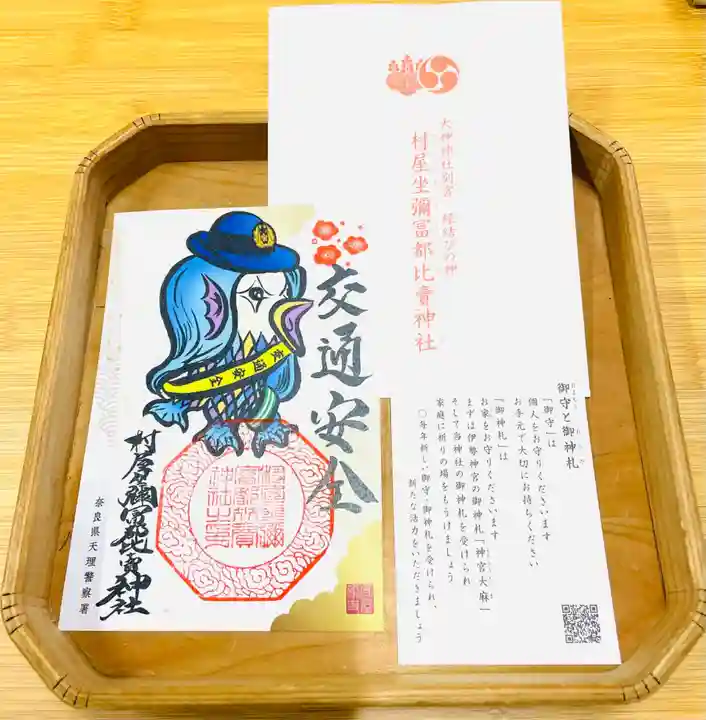 大神神社別宮 縁結びの神
村屋坐彌冨都比賣神社
交通安全
交通安全
村屋坐彌冨都比賣神社
奈良県天理警察署
御守と御神札
「御守」は
個人をお守りくださいます
お手元で大切にお持ちください
「御神札」は
お家をお守りくださいます
まずは伊勢神宮の御神札「神宮大麻」
そして当神社の御神札を受けられ
家庭に祈りの場をもうけましょう
〇毎年新しい御守・御神札を受けられ、
新たな活力をいただきましょう